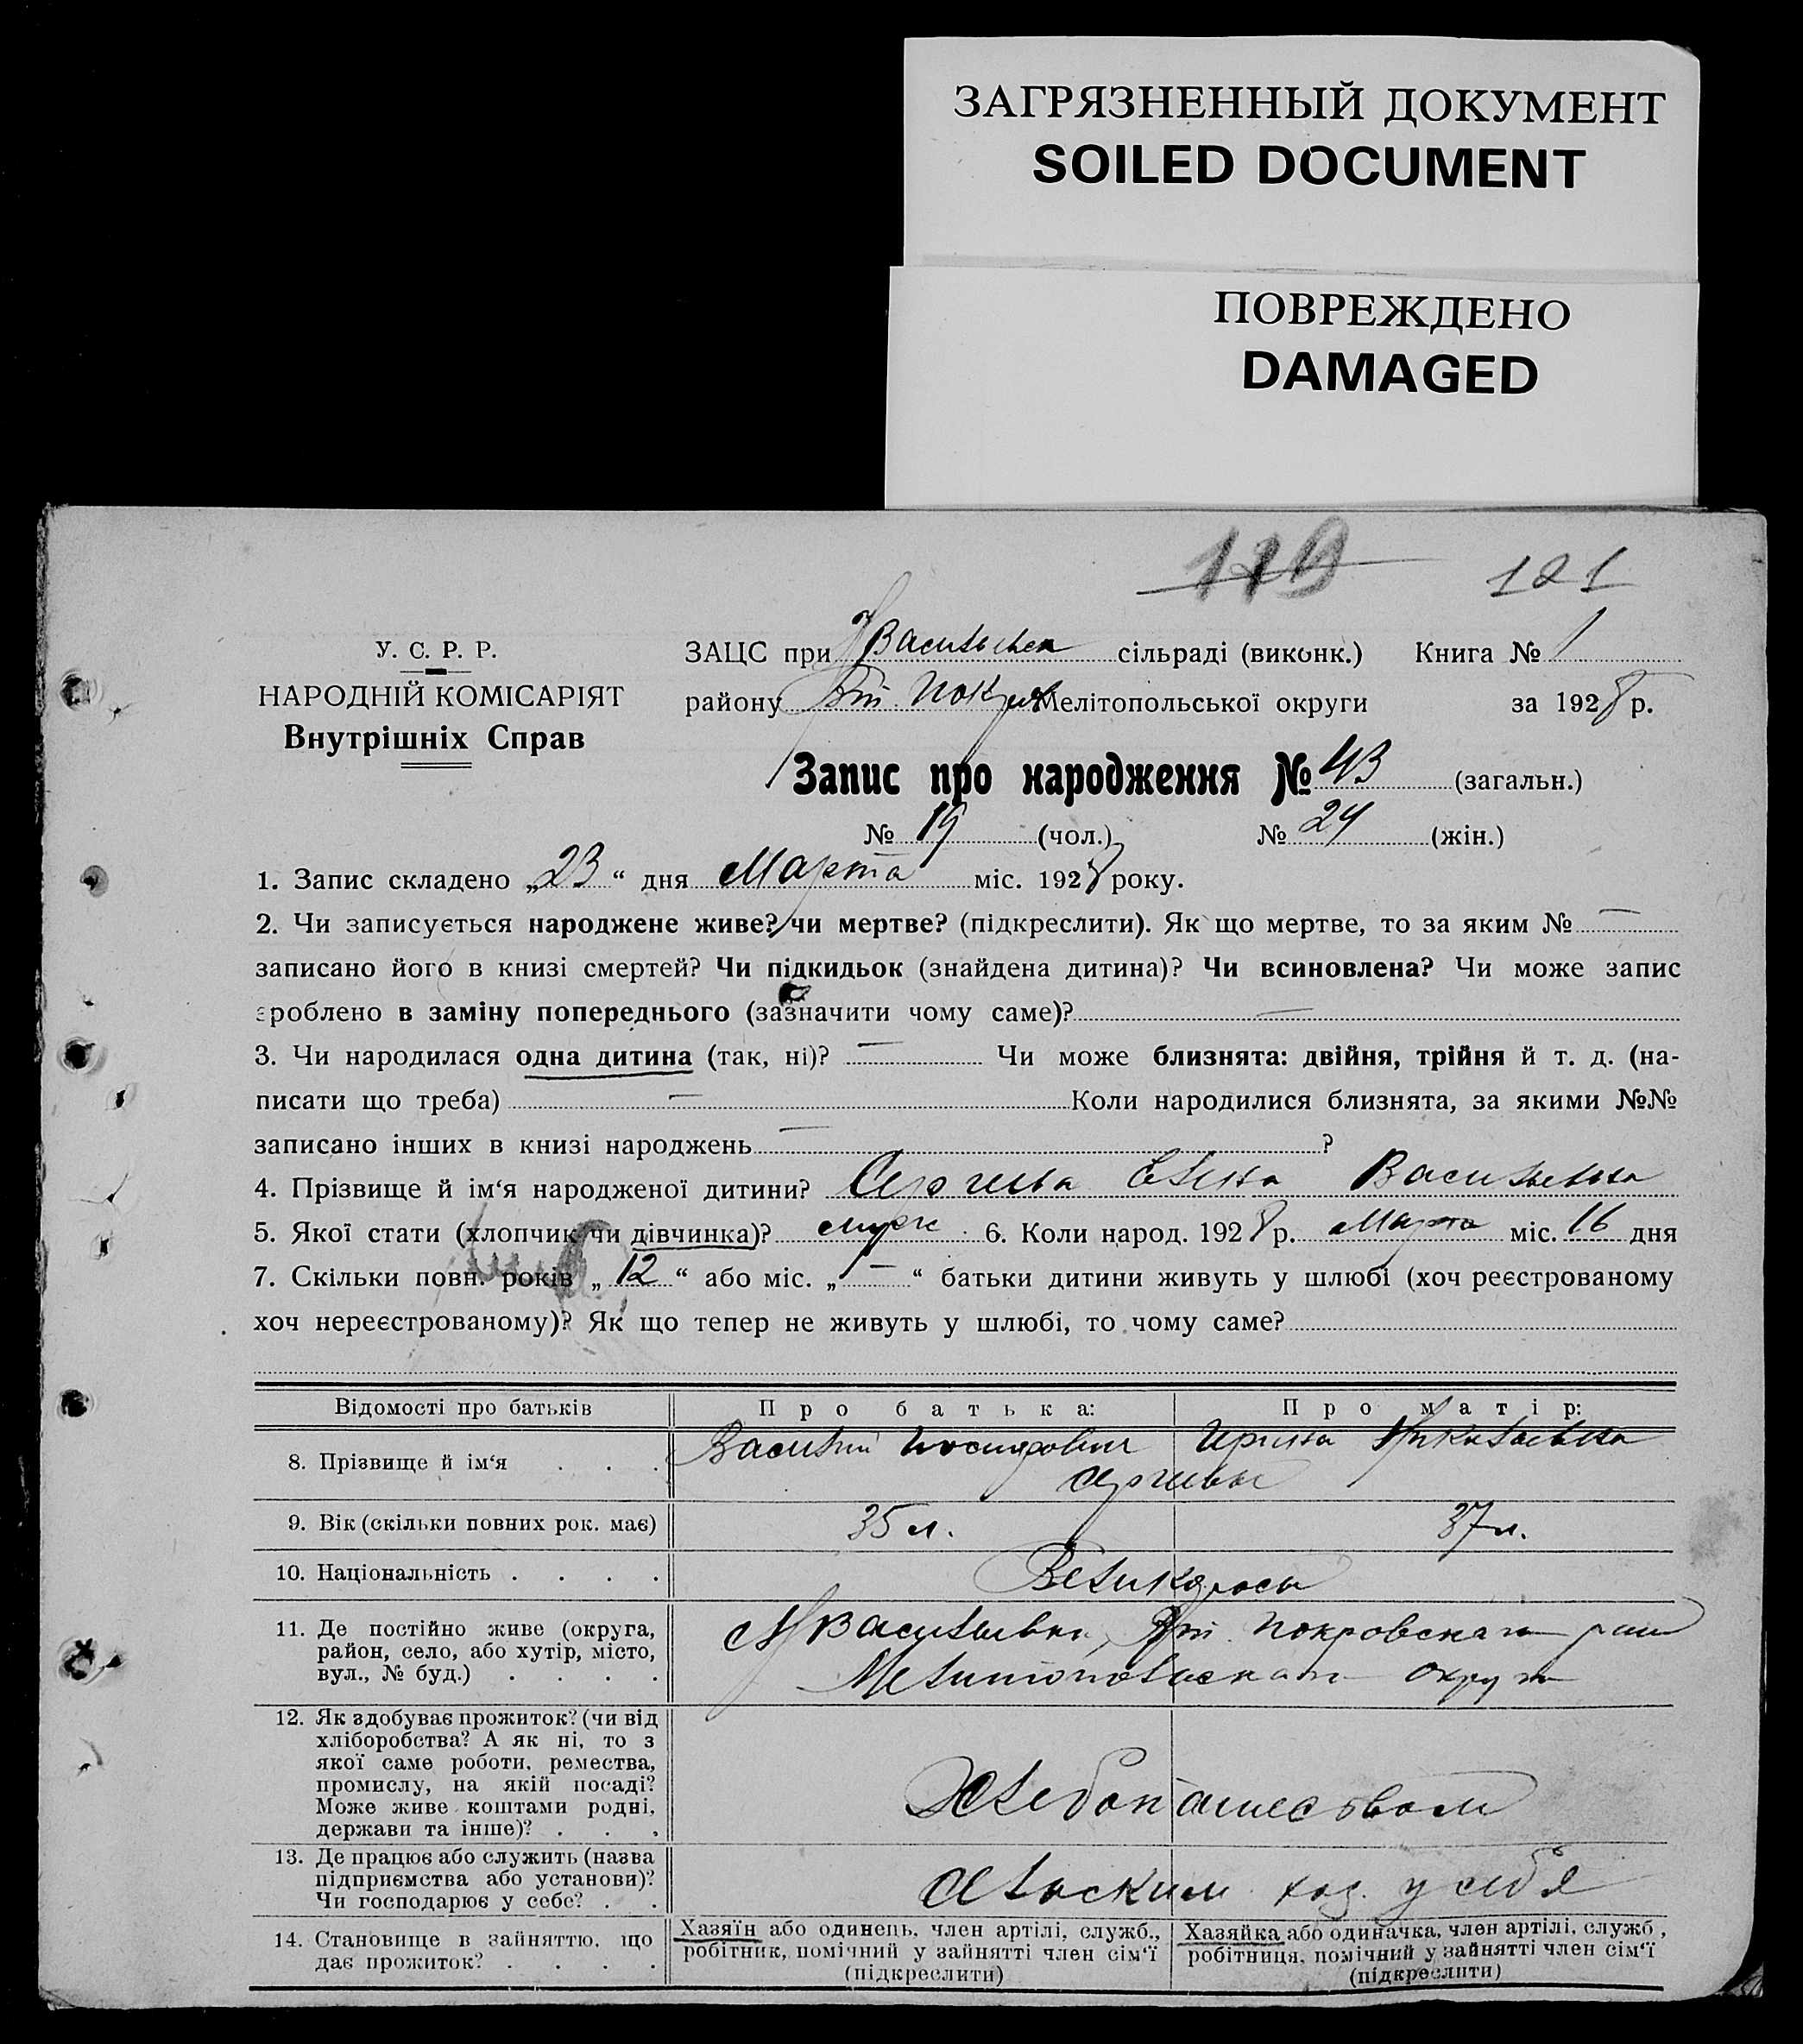 ЗАГРЯЗНЕННЫЙ ДОКУМЕНТ
SOILED DOCUMENT
ПОВРЕЖДЕНО
DAMAGED
121
У. С. Р. Р.
НАРОДНІЙ КОМІСАРІЯТ
Внутрішніх Справ
ЗАЦС при сільраді (виконк.) Книга № 1
району Мелітопольської округи за 1928 р.
Запис про народження № 43 (загальн.)
№ 19 (чол.) № 24 (жін.)
1. Запис складено „23“ дня Марта міс. 1928 року.
2. Чи записується народжене живе? чи мертве? (підкреслити). Як що мертве, то за яким № —
записано його в книзі смертей? Чи підкидьок (знайдена дитина)? Чи всиновлена? Чи може запис
зроблено в заміну попереднього (зазначити чому саме)? —
3. Чи народилася одна дитина (так, ні)? — Чи може близнята: двійня, трійня й т. д. (на-
писати що треба) — Коли народилися близнята, за якими №№
записано інших в книзі народжень — ?
4. Прізвище й ім‘я народженої дитини? Сергиева Елена Васильевна
5. Якої стати (хлопчик чи дівчинка)? 6. Коли народ. 1928 р. Марта міс. 16 дня
7. Скільки повн. років „12“ або міс. „—“ батьки дитини живуть у шлюбі (хоч реєстрованому
хоч нереєстрованому)? Як що тепер не живуть у шлюбі, то чому саме?
Відомості про батьків
Про батька:
Про матір:
8. Прізвище й ім‘я . . .
Василий Иосифович
Ирина
Сергиевы
9. Вік (скільки повних рок. має)
35 л.
37 л.
10. Національність . . . .
Великоросы
11. Де постійно живе (округа,
район, село, або хутір, місто,
вул., № буд.) . . . .
Васильевки, Покровскаго
Мелитопольскаго округа
12. Як здобуває прожиток? (чи від
хліборобства? А як ні, то з
якої саме роботи, ремества,
промислу, на якій посаді?
Може живе коштами родні,
держави та інше)? . . .
Хлебопашеством
13. Де працює або служить (назва
підприємства або установи)?
Чи господарює у себе? . .
Сельским хоз. у себя
14. Становище в зайняттю, що
дає прожиток? . . . .
Хазяїн або одинець, член артілі, служб.,
робітник, помічний у зайнятті член сім‘ї
(підкреслити)
Хазяйка або одиначка, член артілі, служб,
робітниця, помічний у зайнятті член сім‘ї
(підкреслити)